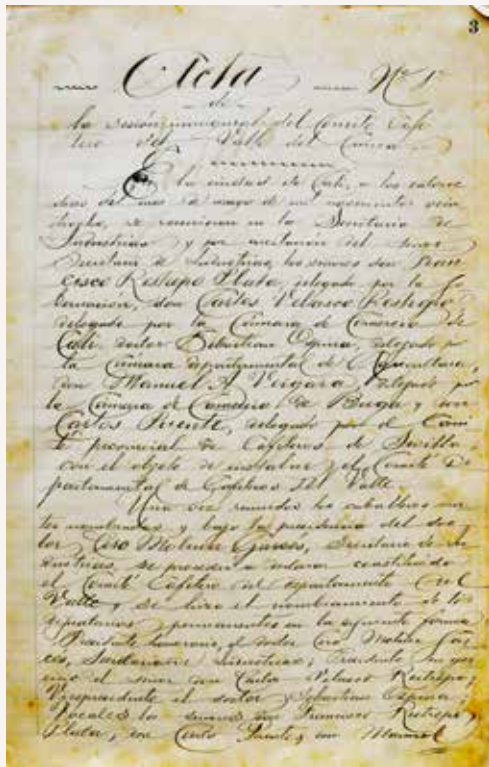 3
Acta Nº 1º
de
la sesión inaugural del Comité Cafe
tero del Valle del Cauca
En la ciudad de Cali, a los catorce
días del mes de mayo de mil novecientos vein
tiocho, se reunieron en la Secretaría de
Industrias y por invitación del señor
Secretario de Industrias, los señores don Fran
cisco Restrepo Plata, delegado por la Go
bernación, don Carlos Velasco Restrepo,
delegado por la Cámara de Comercio de
Cali, doctor Sebastian Ospina, delegado por
la Cámara departamental de Agricultura,
don Manuel A. Vergara, delegado por
la Cámara de Comercio de Buga y don
Carlos Puente, delegado por el Comi
té provincial de Cafeteros de Sevilla,
con el objeto de instalar el Comité De
partamental de Cafeteros del Valle.
Una vez reunidos los caballeros an
tes nombrados y bajo la presidencia del doc
tor Ciro Molina Garcés, Secretario de In
dustrias, se procedió a declarar constituido
el Comité Cafetero del departamento del
Valle y se hizo el nombramiento de los
dignatarios permanentes en la siguiente forma
Presidente honorario, el doctor Ciro Molina Gar
cés, Secretario de Industrias; Presidente en ejer
cicio el señor don Carlos Velasco Restrepo;
Vicepresidente el doctor Sebastian Ospina;
Vocales los señores don Francisco Restrepo
Plata, don Carlos Puente y don Manuel